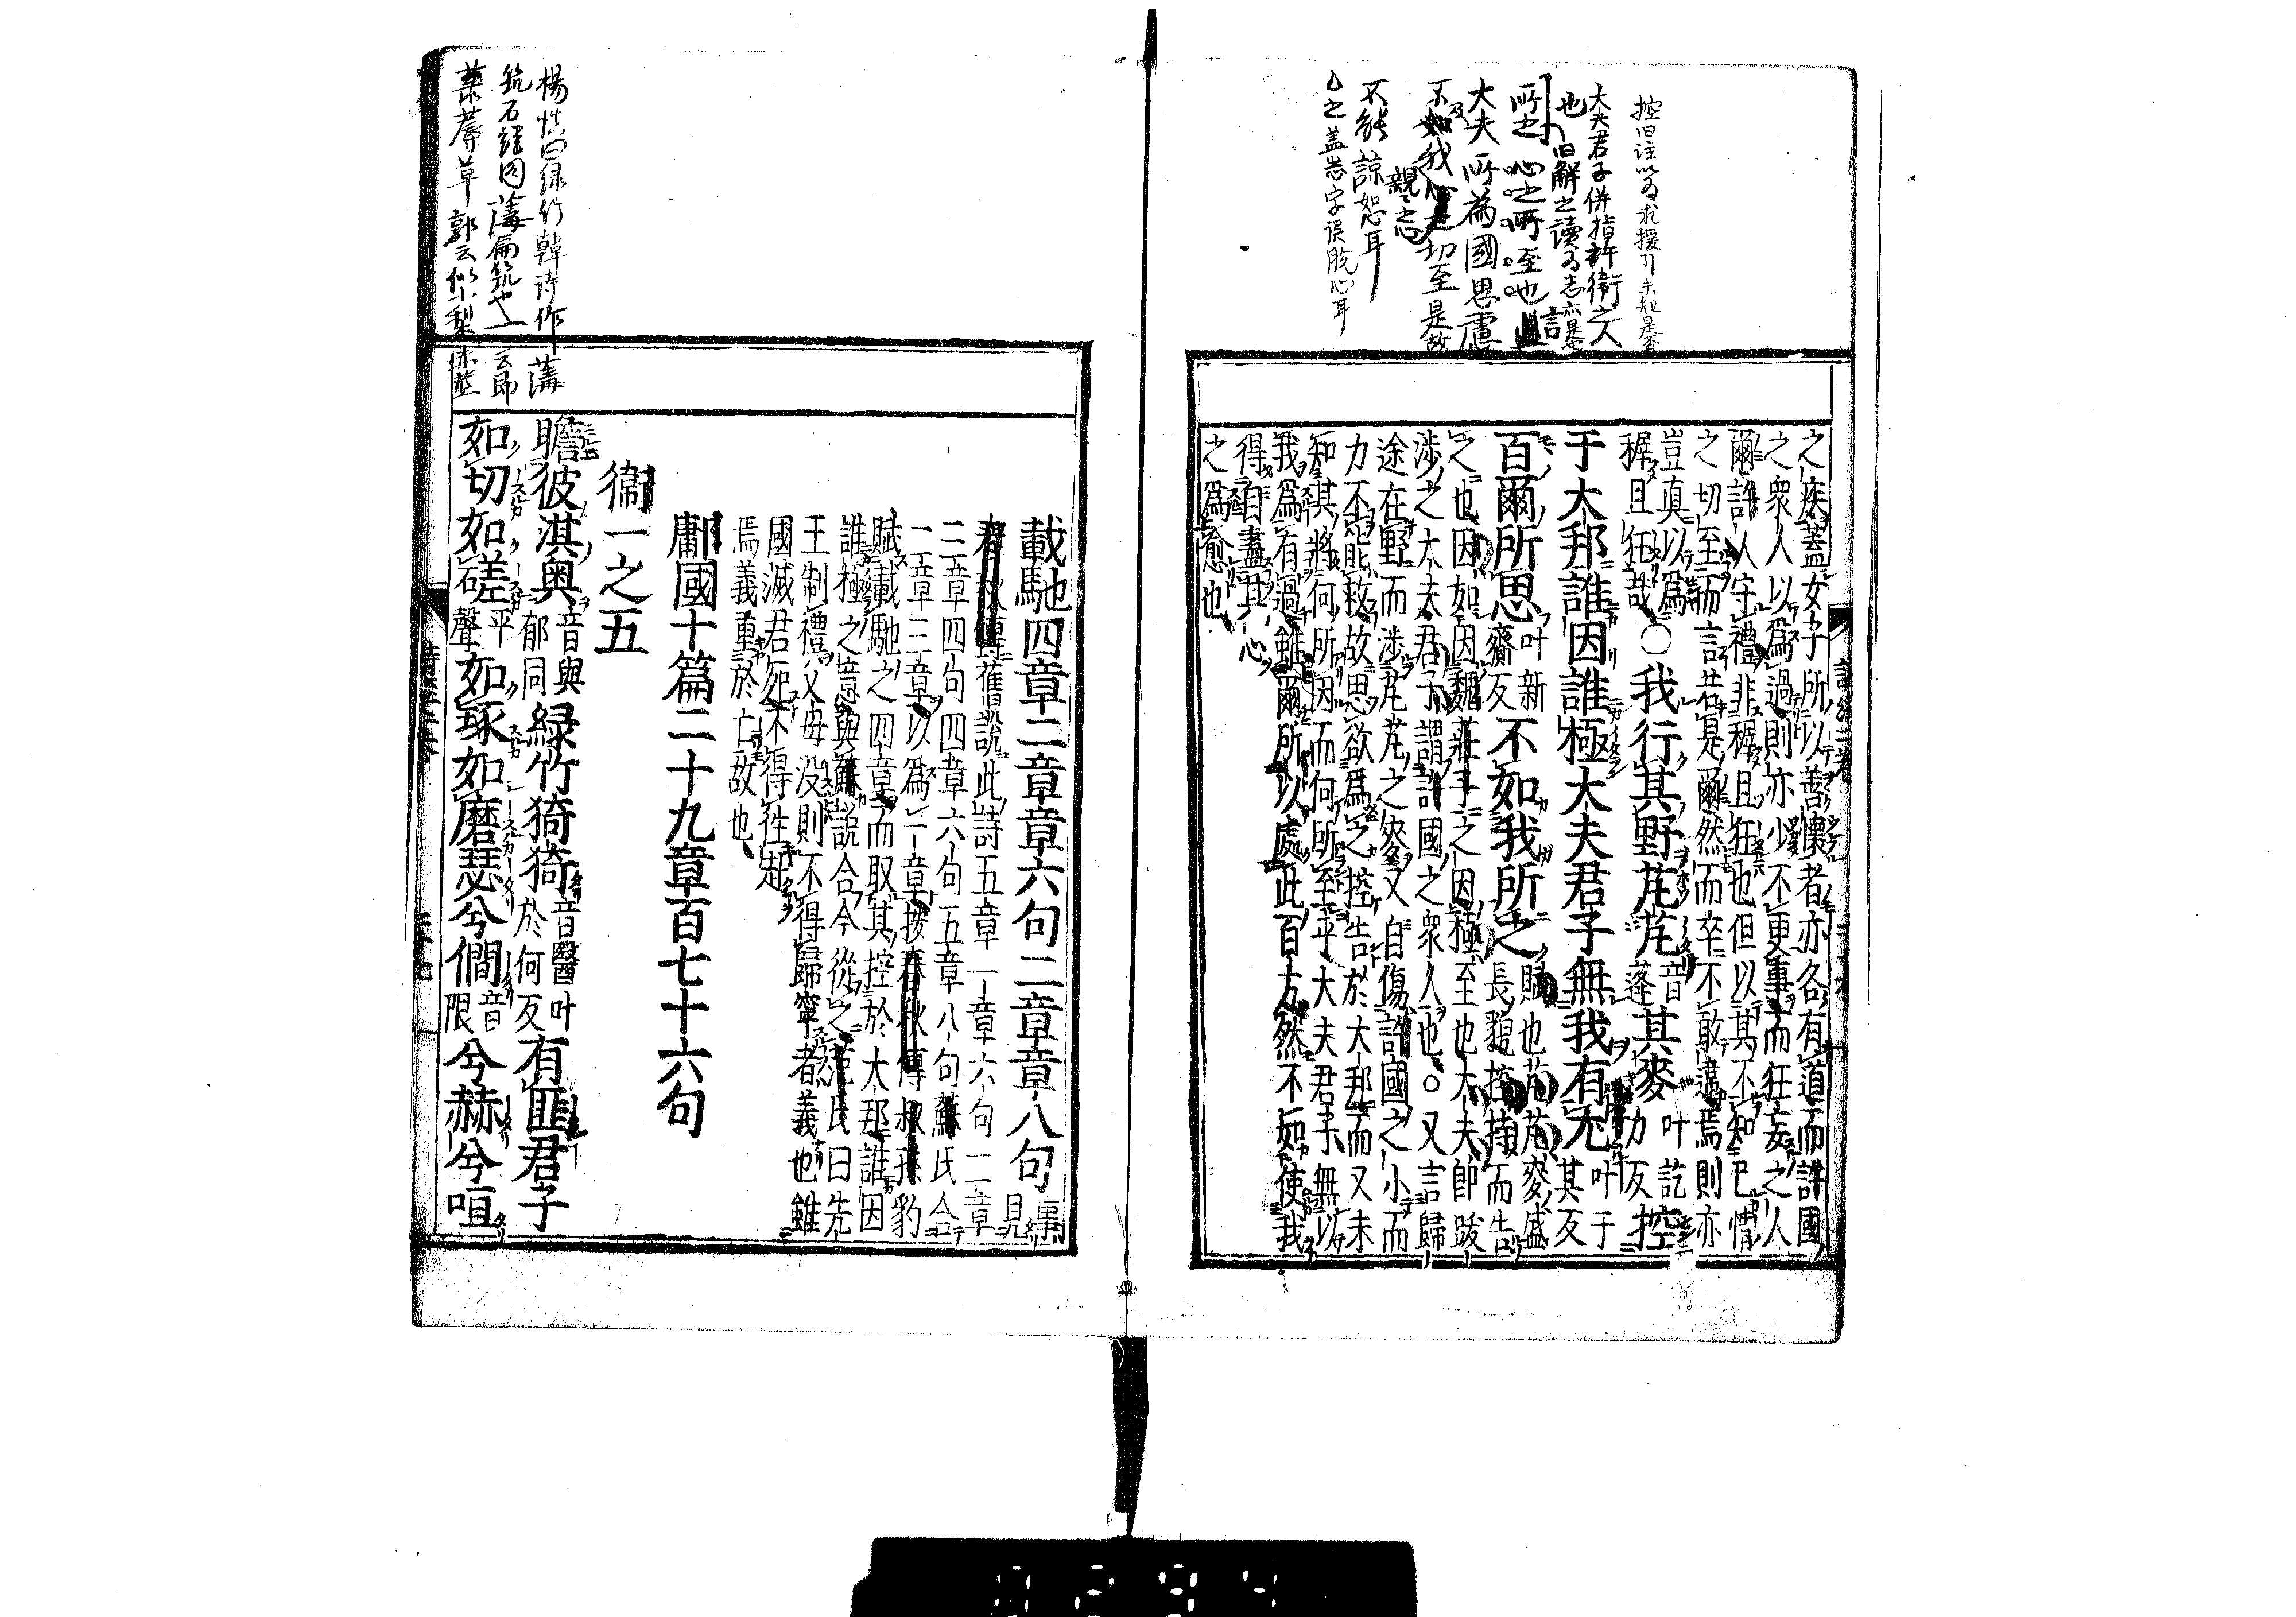 之疾蓋女子所以善懷者亦各有道而許國
之衆人以爲過則亦少不更事而狂妄之人
爾許人守禮非穉且狂也但以其不知己情
之切至而言若是爾然而卒不敢違焉則亦
豈真以爲
穉且狂哉○我行其野芃芃音蓬其麥叶訖力反控
于大邦誰因誰極大夫君子無我有尤叶于其反
百爾所思叶新齎反不如我所之賦也芃芃麥盛長貌控持而告
之也因如因魏莊子之因極至也大夫即跋
渉之大夫君子謂許國之衆人也○又言歸
途在野而渉芃芃之麥又自傷許國之小而
力不能救故思欲爲之控告於大邦而又未
知其將何所因而何所至乎大夫君子無以
我爲有過雖爾所以處此百方然不如使我
得自盡其心
之爲愈也
載馳四章二章章六句二章章八句
事見
春秋傳舊說此詩五章一章六句二章
三章四句四章六句五章八句蘇氏合
二章三章以爲一章按春秋傳叔孫豹
賦載馳之四章而取其控於大邦誰因
誰極之意與蘇說合今從之范氏曰先
王制禮父母没則不得歸寧者義也雖
國滅君死不得往赴
焉義重於亡故也
鄘國十篇二十九章百七十六句
衞一之五
瞻彼淇奥音郁與同緑竹猗猗音醫叶於何反有匪君子
如切如磋平聲如琢如磨瑟兮僩音限兮赫兮咺
控旧注以爲求援引未知是否
大夫君子併指許衛之人
也
旧解之讀爲志亦是
所之心之所至也言
大夫所為國思慮
不及我心之切至是故
親之心
不能諒恕耳
△之蓋志字误脱心耳
楊慎曰緑竹韓诗作薄
筑石經同薄萹筑也一云即
菉蓐草郭云似小藜赤莖